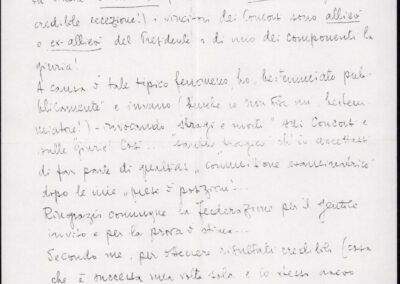 credibile eccezione!) i vincitori dei Concorsi sono allievi
o ex-allievi del Presidente o di uno dei componenti la
giuria!
A causa di tale tipico fenomeno, ho "bestemmiato pub-
blicamente" e invano (benché io non sia un bestem-
miatore!) - invocando stragi e morti sui Concorsi e
sulle Giurie! Così... sarebbe tragico ch'io accettassi
di far parte di qualsiasi "commissione esaminatrice"
dopo le mie "prese di posizione"...
Ringrazio comunque la Federazione per il gentile
invito e per la prova di stima...
Secondo me, per ottenere risultati credibili (cosa
che è successa una volta sola e io stesso avevo